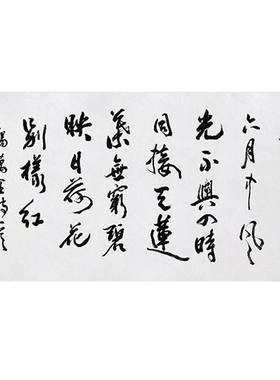 六月中風
光不與四時
同接天蓮
葉無窮碧
映日荷花
別樣紅
萬里詩